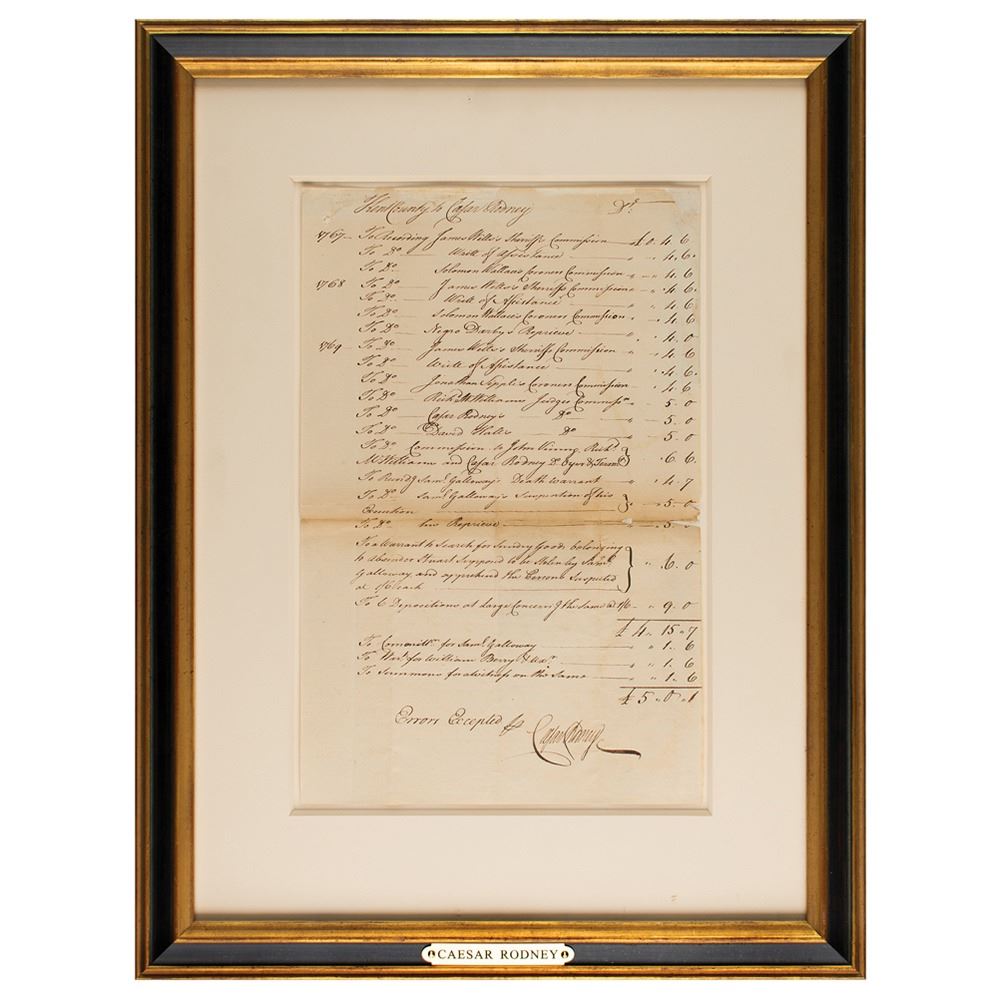 Kent County to Cæsar Rodney Dr.
1767 — To Recording James Wells's Sheriffs Commission — £ 0. 4. 6
To Do — Writt of Assistance — " " 4. 6.
To Do — Solomon Wallace's Coroners Commission — " " 4. 6
1768 To Do — James Wells's Sherriffs Commission — " 4. 6.
To Do — Writt of Assistance — " 4. 6
To Do — Solomon Wallace's Coroners Commission — " 4. 6
To Do — Negro Darby's Reprieve — " 4. 0
1769 — To Do — James Wells's Sherriffs Commission — " 4. 6
To Do — Writt of Assistance — " 4. 6.
To Do — Jonathan Coroners Commission — " 4. 6
To Do — Richd McWilliams Judges Commissn — " 5. 0
To Do — Cæsar Rodney's Do — " 5. 0
To Do — David Hall's Do — " 5. 0
To Do Commission to John Vining Richd
McWilliams and Cæsar Rodney Do Oyer & Terminr } " 6. 6.
To Samel Galloway's Death Warrant — " 4. 7
To Do — Saml Galloway's Suspension of his
Execution } " 5. 0
To Do his Reprieve — " 5.
To a Warrant to Search for Sundry Goods belonging
to Stuart Supposed to be Stolen by Saml
Galloway and apprehend the Persons Suspected
at each } " 6. 0
To 6 Depositions at large Concerng the Same @ 1/6 — " 9. 0
£ 4 " 15 " 7
To for Saml Galloway — " 1. 6
To for William Berry & Ux — " 1. 6
To Summons for a witness on the Same — " 1. 6
£ 5 " 0 " 1
Errors Excepted
Cæsar Rodney
CAESAR RODNEY